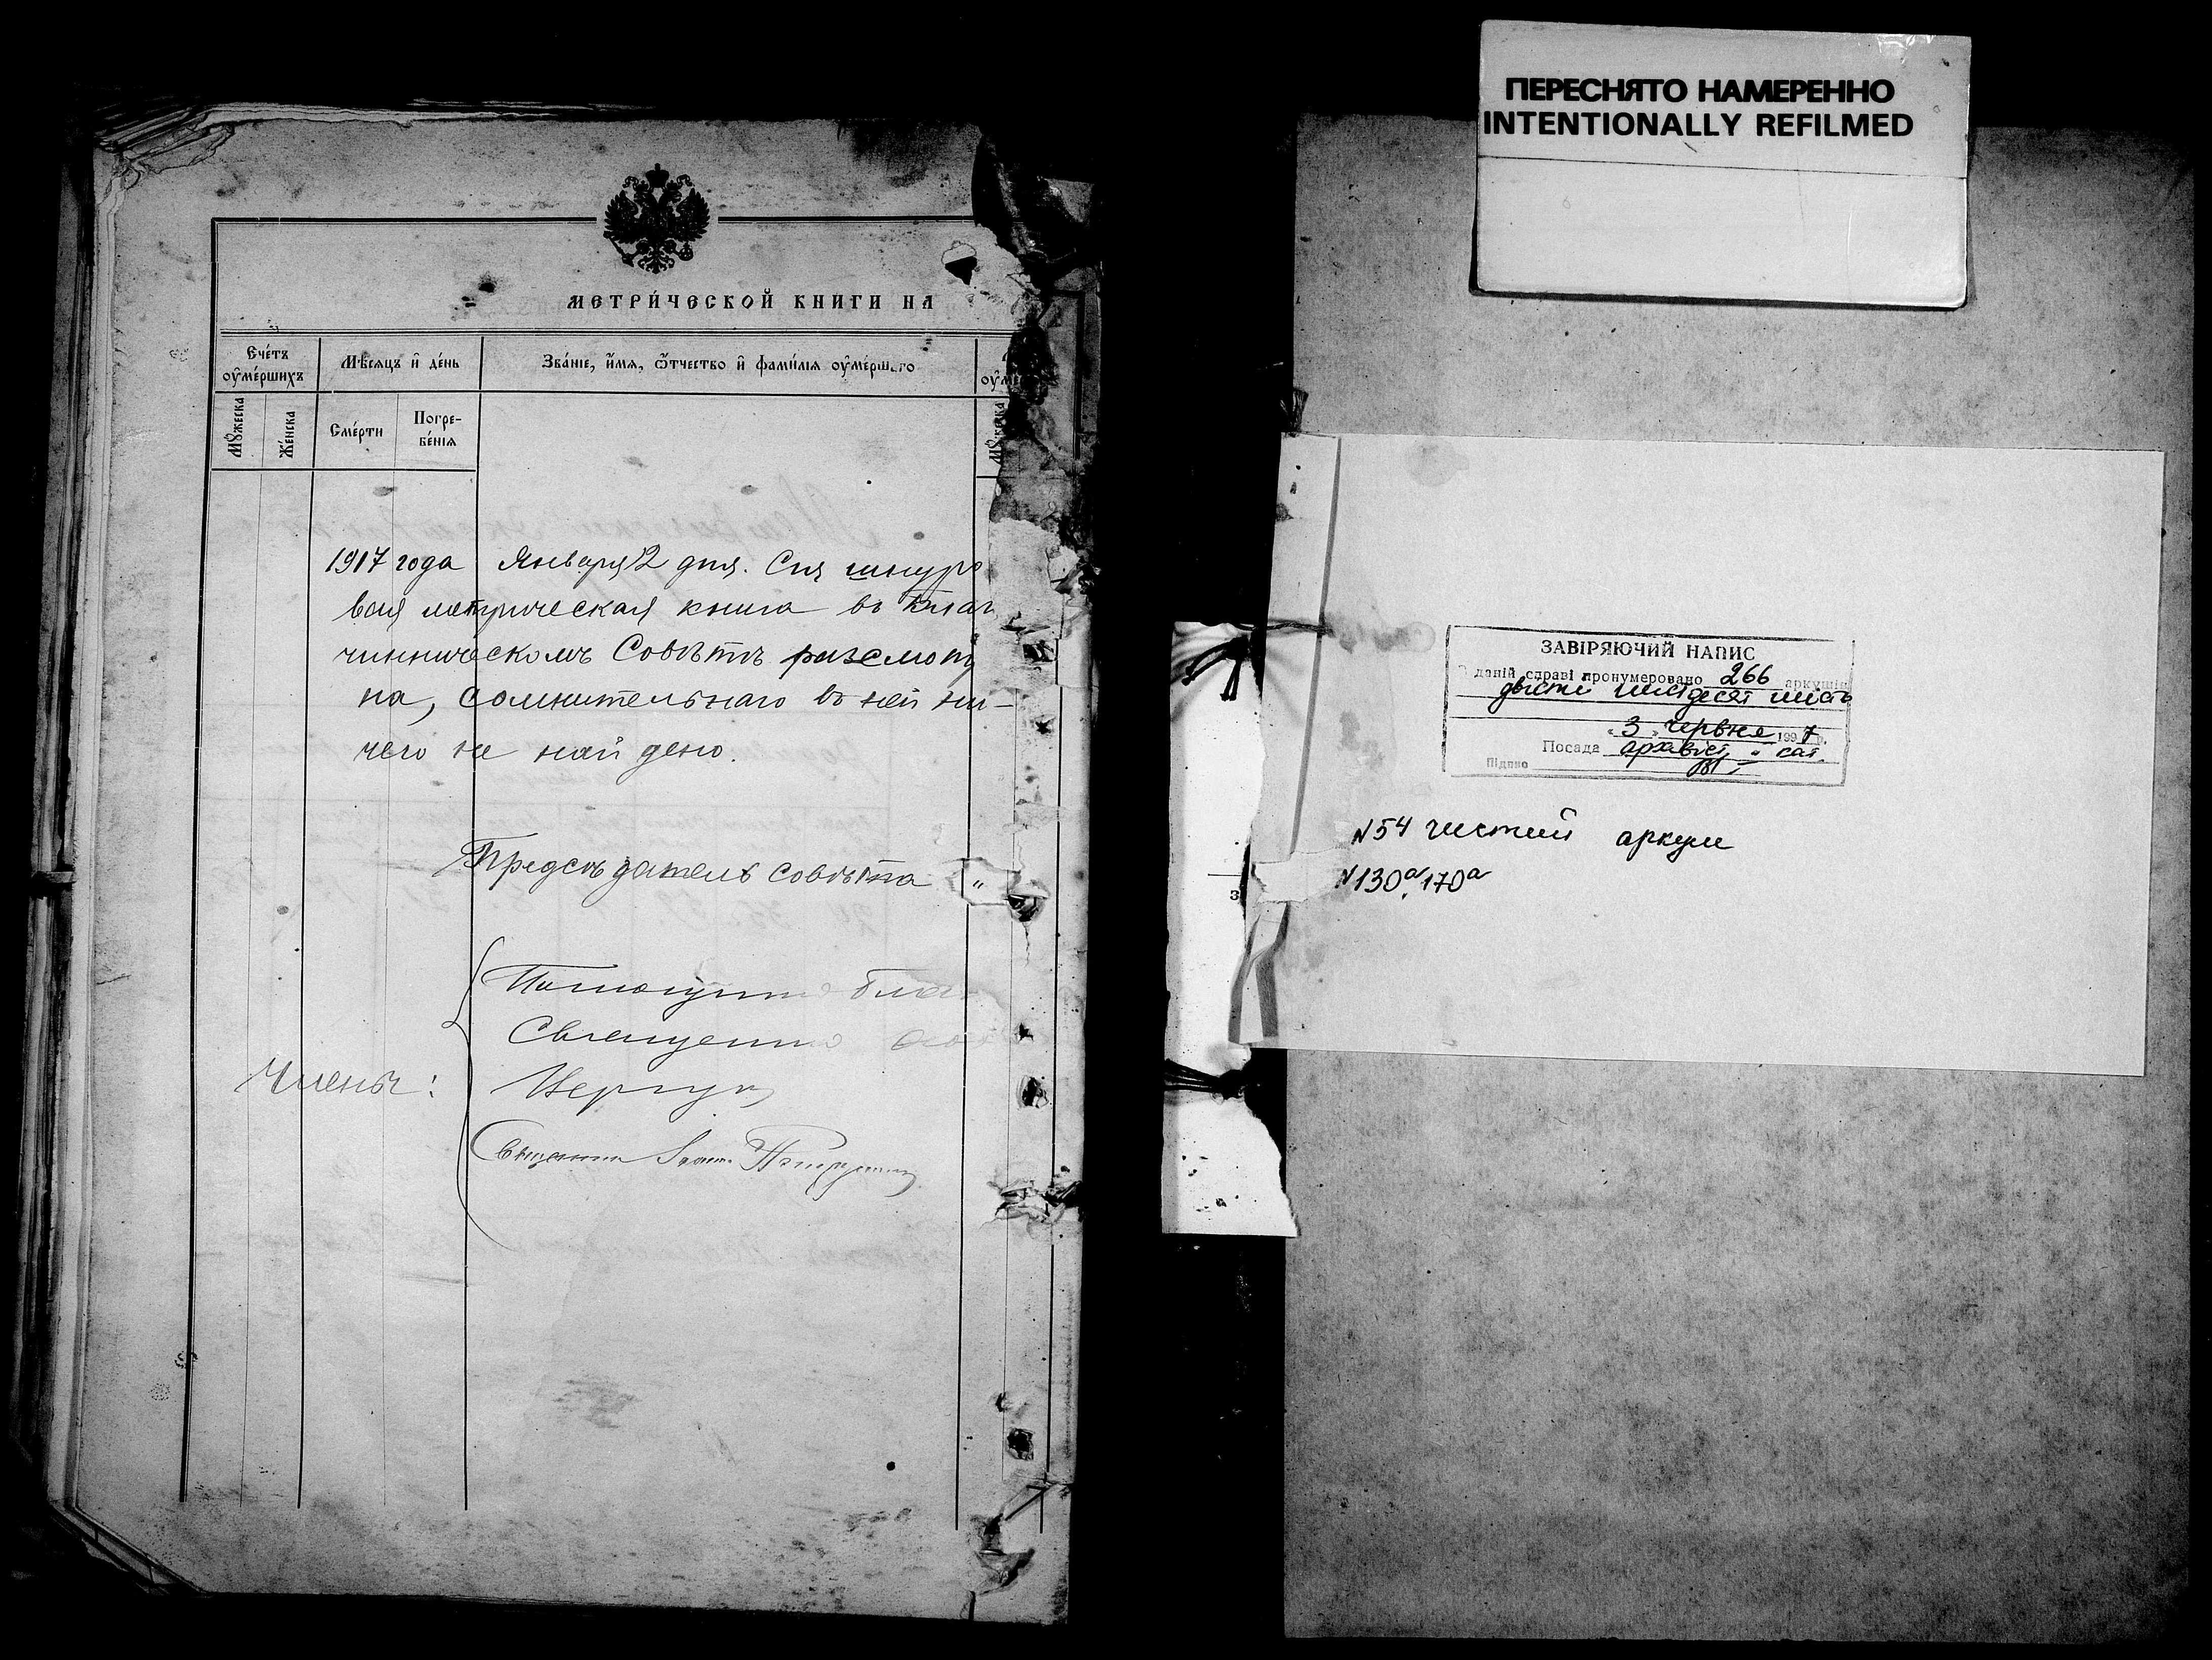 МЕТРИ́ЧЕСКОЙ КНИГИ НА
Сче́тъ оу҆ме́ршихъ
Мѣ́сяцъ и҆ де́нь
Зва́нїе, и҆́мя, ѻ҆́тчество и҆ фами́лїя оу҆ме́ршаго
Мꙋ́жеска
Же́нска
Сме́рти
Погре-
бе́нїя
Мꙋ́жеска
1917 года Января 12 дня. Сія шнуро
вая метрическая книга въ Благ
чинническомъ Совѣтѣ разсмотр
на, сомнительнаго въ ней ни-
чего не найдено.
Предсѣдатель совѣта "
Помощник Благ
Священник
Члены:
Священник Іоанн
ПЕРЕСНЯТО НАМЕРЕННО
INTENTIONALLY REFILMED
ЗАВІРЯЮЧИЙ НАПИС
В даній справі пронумеровано 266 аркушів
двісті шістдесят шість
"3" червня 1997 р.
Посада архівіст І кат.
Підпис
N54 чистий аркуш
N130а, 170а